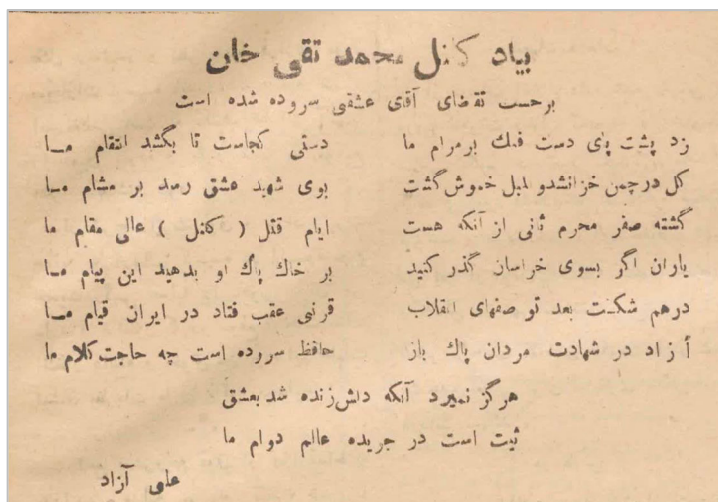 بیاد کنل محمد تقی خان
برحسب تقضای آقای عشقی سروده شده است
زد پشت پای دست فلك برمرام ما دستی کجاست تا بکشد انتقام مـا
کل درچمن خزانشدو لبل خموش گشت بوی شهید عشق رسد بر مشام مـا
گشته صفر محرم ثانی از آنکه هست ایام قتل ( کنل ) عالی مقام ما
یاران اگر بسوی خراسان گذر کنید بر خاك پاك او بدهید این پیام مـا
درهم شکست بعد تو صفهای انقلاب قرنی عقب فتاد در ایران قیام مـا
آزاد در شهادت مردان پاك باز حافظ سروده است چه حاجت کلام ما
هرگز نمیرد آنکه دلش زنده شد بعشق
ثبت است در جریده عالم دوام ما
علی آزاد